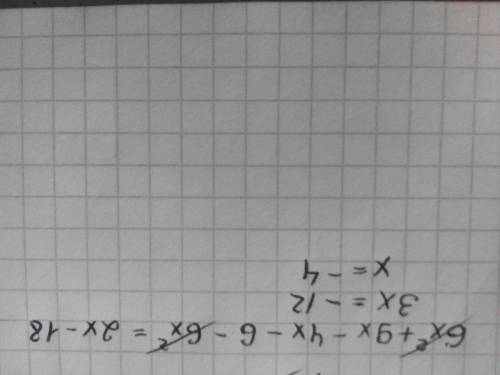 6x² + 9x - 4x - 6 - 6x² = 2x - 18
3x = - 12
x = - 4